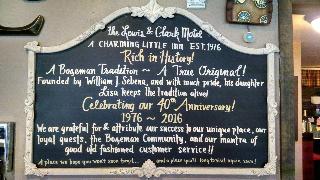 the Lewis & Clark Motel
A CHARMING LITTLE INN EST. 1976
Rich in History!
A Bozeman Tradition ~ A True Original!
Founded by William J Sebena, and with much pride, his daughter
Lisa keeps the tradition alive!
Celebrating our 40th Anniversary!
1976 ~ 2016
We are grateful for & attribute our success to our unique place, our
loyal guests, the Bozeman Community, and our mantra of
good old fashioned customer service!!
A place we hope you won't soon forget... and a place you'll long to visit again soon!